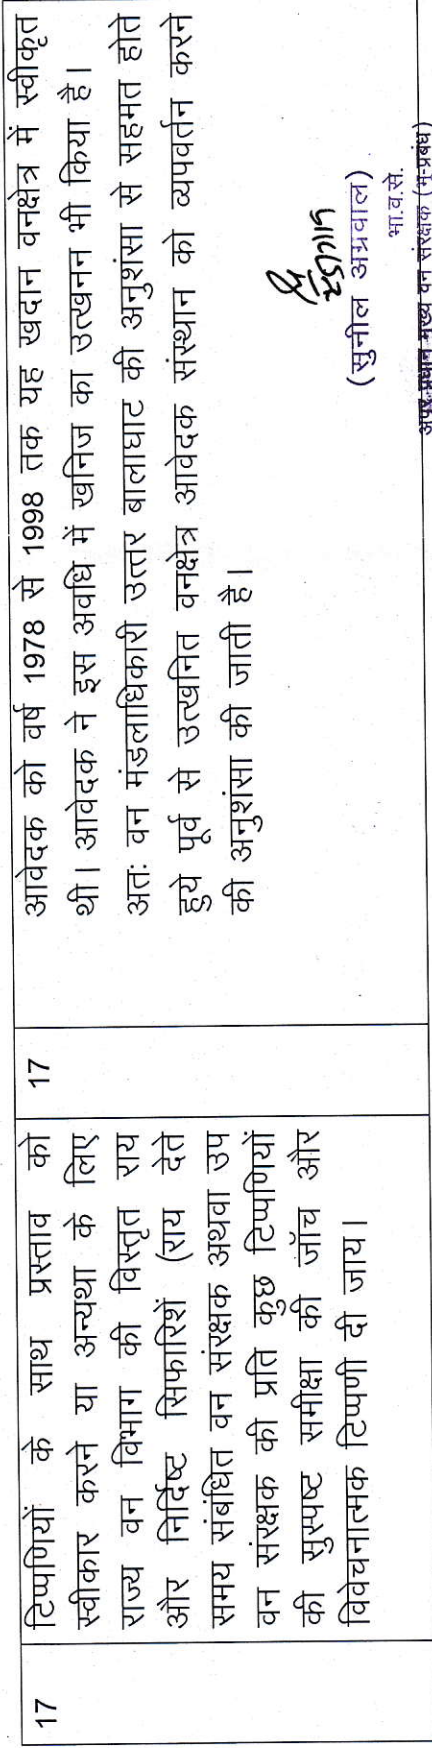 17
टिप्पणियों के साथ प्रस्ताव को
स्वीकार करने या अन्यथा के लिए
राज्य वन विभाग की विस्तृत राय
और निर्दिष्ट सिफारिशें (राय देते
समय संबंधित वन संरक्षक अथवा उप
वन संरक्षक की प्रति कुछ टिप्पणियों
की सुस्पष्ट समीक्षा की जॉच और
विवेचनात्मक टिप्पणी दी जाय।
17
आवेदक को वर्ष 1978 से 1998 तक यह खदान वनक्षेत्र में स्वीकृत
थी। आवेदक ने इस अवधि में खनिज का उत्खनन भी किया है।
अतः वन मंडलाधिकारी उत्तर बालाघाट की अनुशंसा से सहमत होते
हुये पूर्व से उत्खनित वनक्षेत्र आवेदक संस्थान को व्यपवर्तन करने
की अनुशंसा की जाती है।
(सुनील अग्रवाल)
भा.व.से.
अपर प्रधान मुख्य वन संरक्षक (भू-प्रबंध)